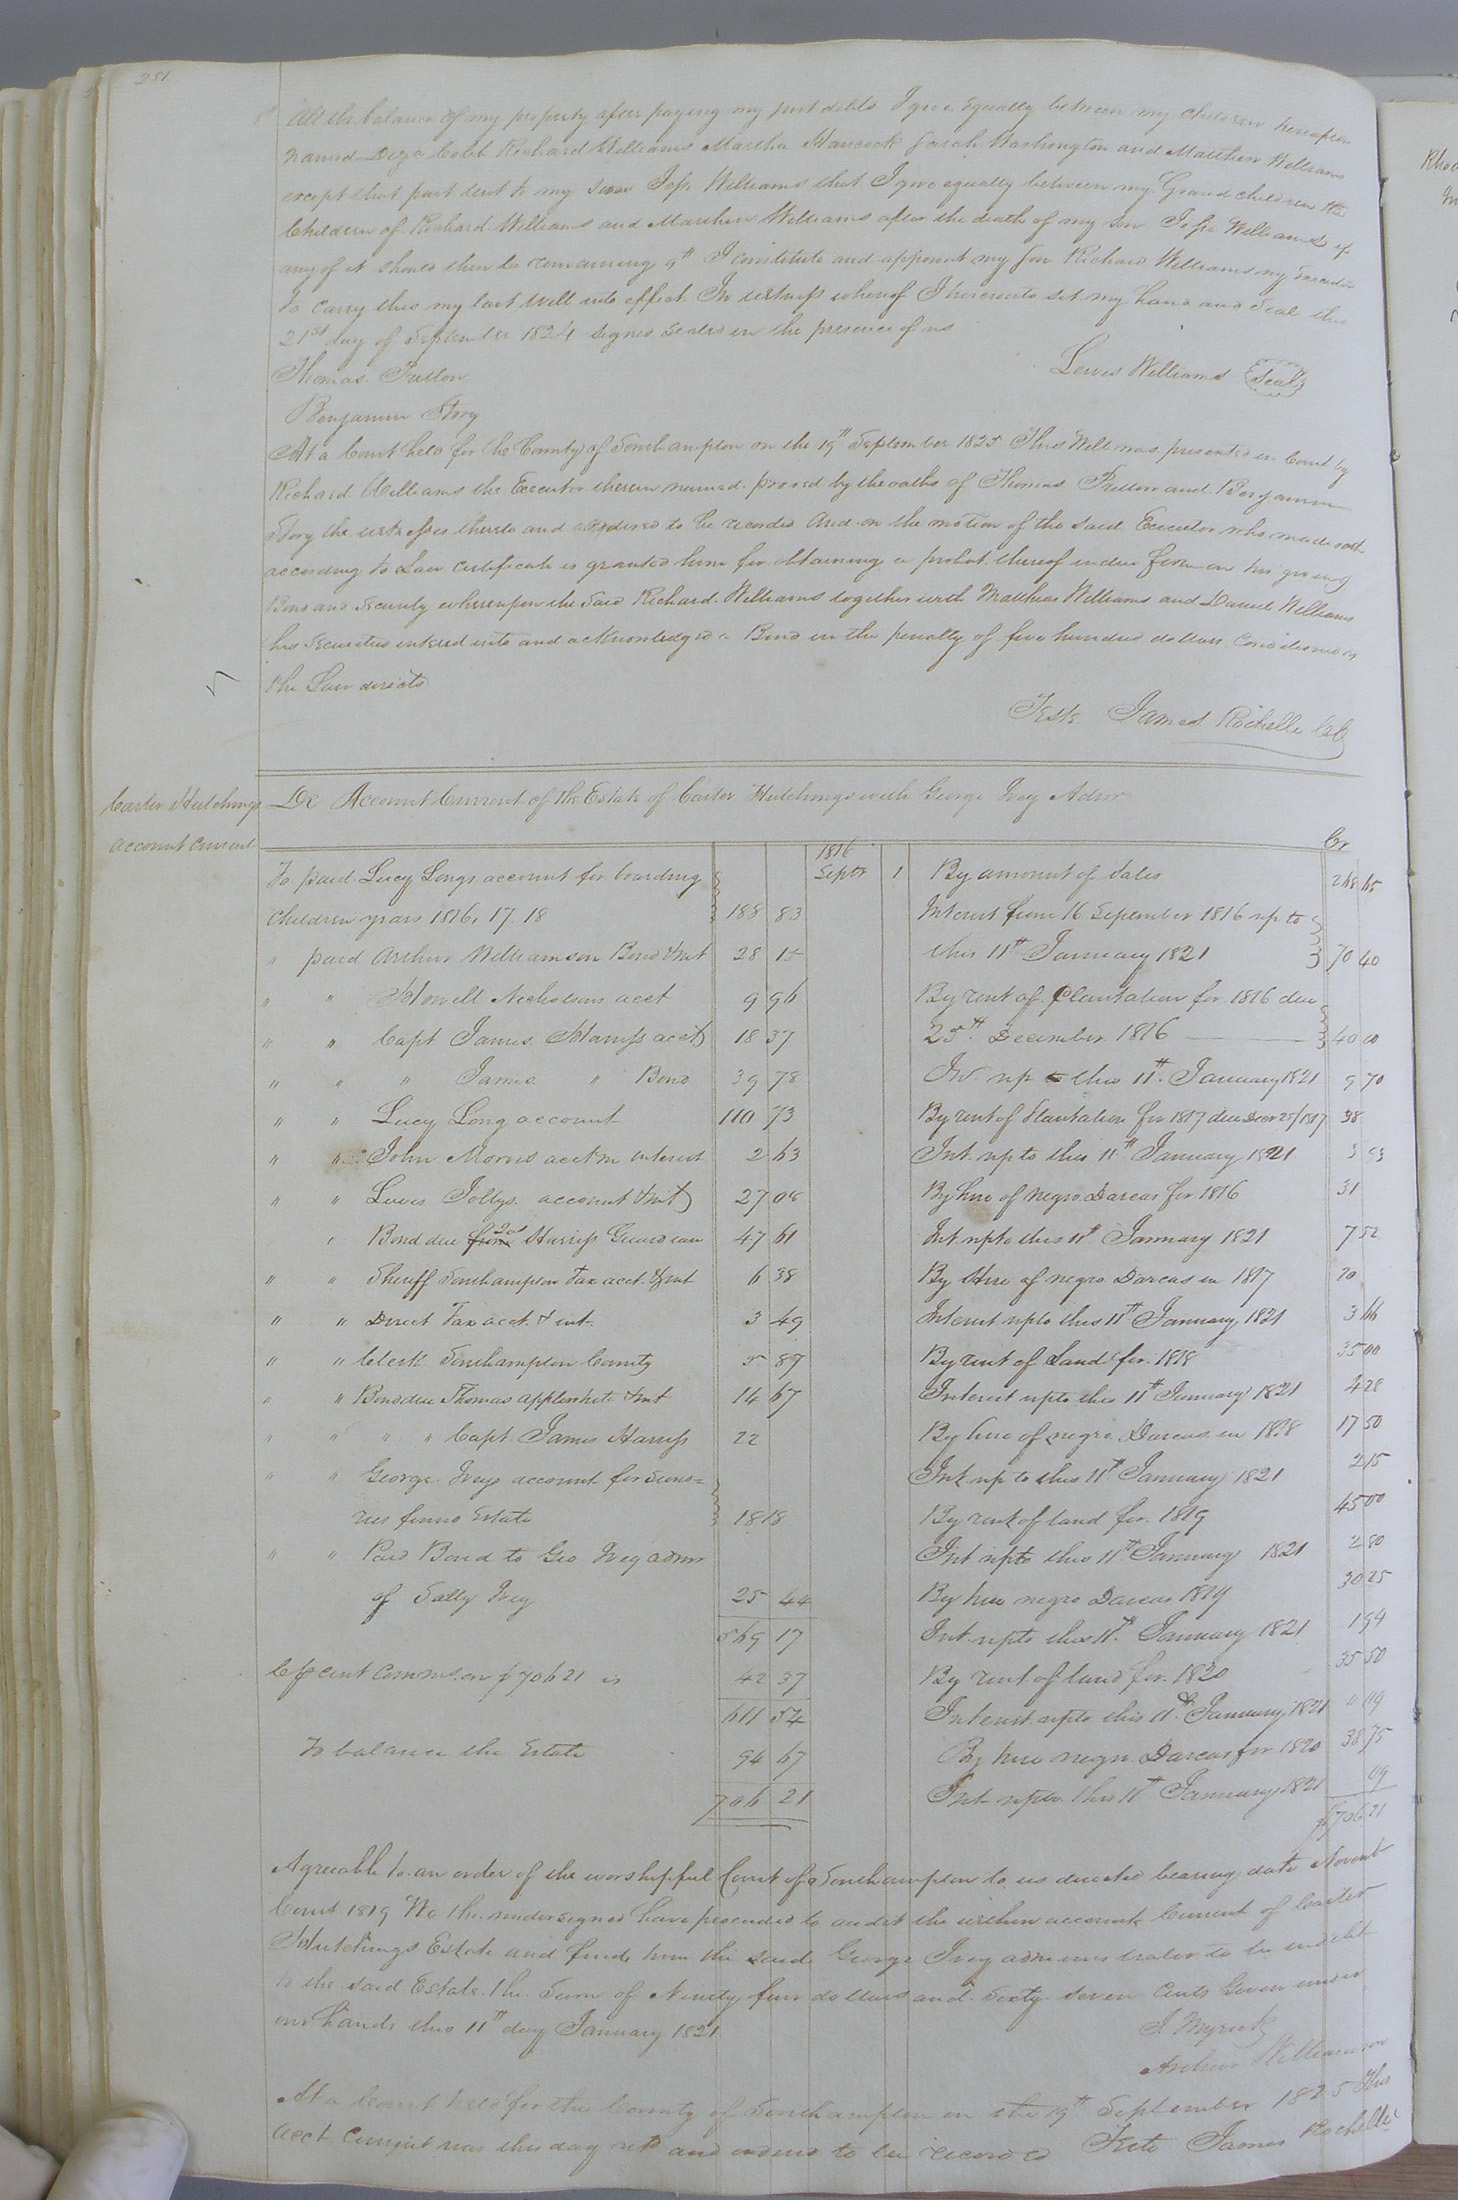 281
8th All the balance of my property after paying my just debts I give equally between my children hereafter
named Dizo Cobb Richard Williams Martha Hancock Sarah Washington and Matthew Williams
except that part lent to my son Jesse Williams that I give equally between my Grand children the
Children of Richard Williams and Matthew Williams after the death of my son Jesse Williams if
any of it should then be remaining 9th I constitute and appoint my son Richard Williams my Executor
to carry this my last will into effect In witness whereof I hereunto set my hand and seal this
21st day of September 1824 signed sealed in the presence of us
Lewis Williams Seal
Thomas Pretlow
Benjamin Story
At a Court held for the County of Southampton on the 19th September 1825 This Will was presented in Court by
Richard Williams the Executor therein named proved by the oaths of Thomas Pretlow and Benjamin
Story the witnesses thereto and ordered to be recorded And on the motion of the said Executor who made oath
according to Law certificate is granted him for obtaining a probat thereof in due form on his giving
Bond and Security whereupon the said Richard Williams together with Matthew Williams and Daniel Williams
his securities entered into and acknowledged a Bond in the penalty of five hundred dollars Conditioned as
the Law directs
Teste James Rochelle CC
Carter Hutchings
account current
Dr Account Current of the Estate of Carter Hutchings with George Ivey Admr
Cr
To paid Lucy Longs account for boarding
children years 1816, 17. 18 188 83
" paid Arthur Williamson Bond & int 28 15
" " Howell Nicholsons acct 9 96
" " Capt James Harriss acct 18 37
" " " James " Bond 39 78
" " Lucy Long account 110 73
" " John Morris acct & interest 2 63
" " Lewis Jollys account & int 27 08
" Bond due from Harriss Guardian 47 61
" " Sheriff Southampton Tax acct & int 6 38
" " Direct Tax acct. & int. 3 49
" " Clerk Southampton County 5 87
" " Bond due Thomas Applewhite & int 14 67
" " " " Capt. James Harriss 22
" " George Iveys account for
ries Estate 18 18
" " Paid Bond to Geo Ivey admr
of Sally Ivey 25 44
569 17
6 pr cent Comms. on $706 21 is 42 37
611 54
To balance the Estate 94 67
706 21
1816
Septr 1 By amount of Sales 268 65
Interest from 16 September 1816 up to
this 11th January 1821 70 40
By rent of Plantation for 1816 due
25th December 1816 40 00
Int. up to this 11th January 1821 9 70
By rent of Plantation for 1817 due Decr 25/1817 38
Int. up to this 11th January 1821
By hire of negro Darcas for 1816 31
Int up to this 11th January 1821 7 52
By Hire of negro Darcas in 1817 20
Interest upto this 11th January 1821 3 66
By rent of Land for 1818 35 00
Interest upto this 11th January 1821 4 28
By hire of negro Darcas in 1818 17 50
Int up to this 11th January 1821 2 15
By rent of land for 1819 45 00
Int upto this 11th January 1821 2 80
By hire negro Darcas 1819 30 25
Int. upto this 11th January 1821 1 94
By rent of land for 1820 35 50
Interest upto this 11th January 1821 0 09
By hire negro Darcas for 1820 38 75
Int upto this 11th January 1821 09
$706 21
Agreeable to an order of the worshipful Court of Southampton to us directed bearing date Novemb
Court 1819 We the undersigned have proceeded to audit the within account Current of Carter
Hutchings Estate and find him the said George Ivey administrator to be indebt
to the said Estate the sum of Ninety four dollars and Sixty Seven Cents Given under
our hands this 11th day January 1821
J. Myrick
Arthur Williamson
At a Court held for the County of Southampton on the 19th September 1825 This
acct Current was this day retd and ordered to be recorded Teste James Rochelle